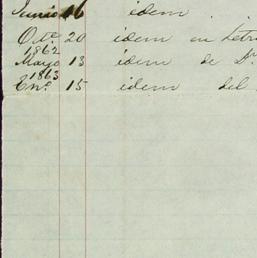 Junio 16 idem
Oct.e 20 idem en letra
1862
Mayo 13 idem de D.n
1863
En.o 15 idem del